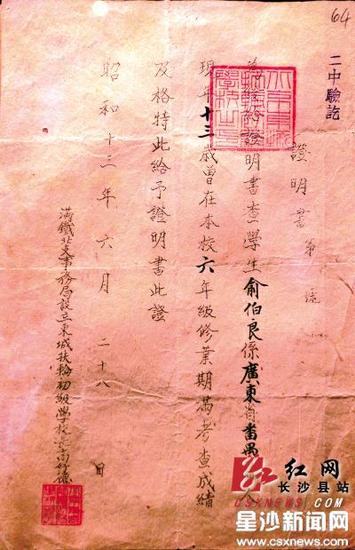 64
二中驗訖
證明書 第 號
為發給證明書查學生俞伯良係廣東省番禺
現年十三歲曾在本校六年級修業期滿考查成績
及格特此給予證明書此證
昭和十三年六月二十八日
滿鐵北支事務局設立東城扶輪初級學校
红网
长沙县站
CSXNEWS.COM
星沙新闻网
www.csxnews.com